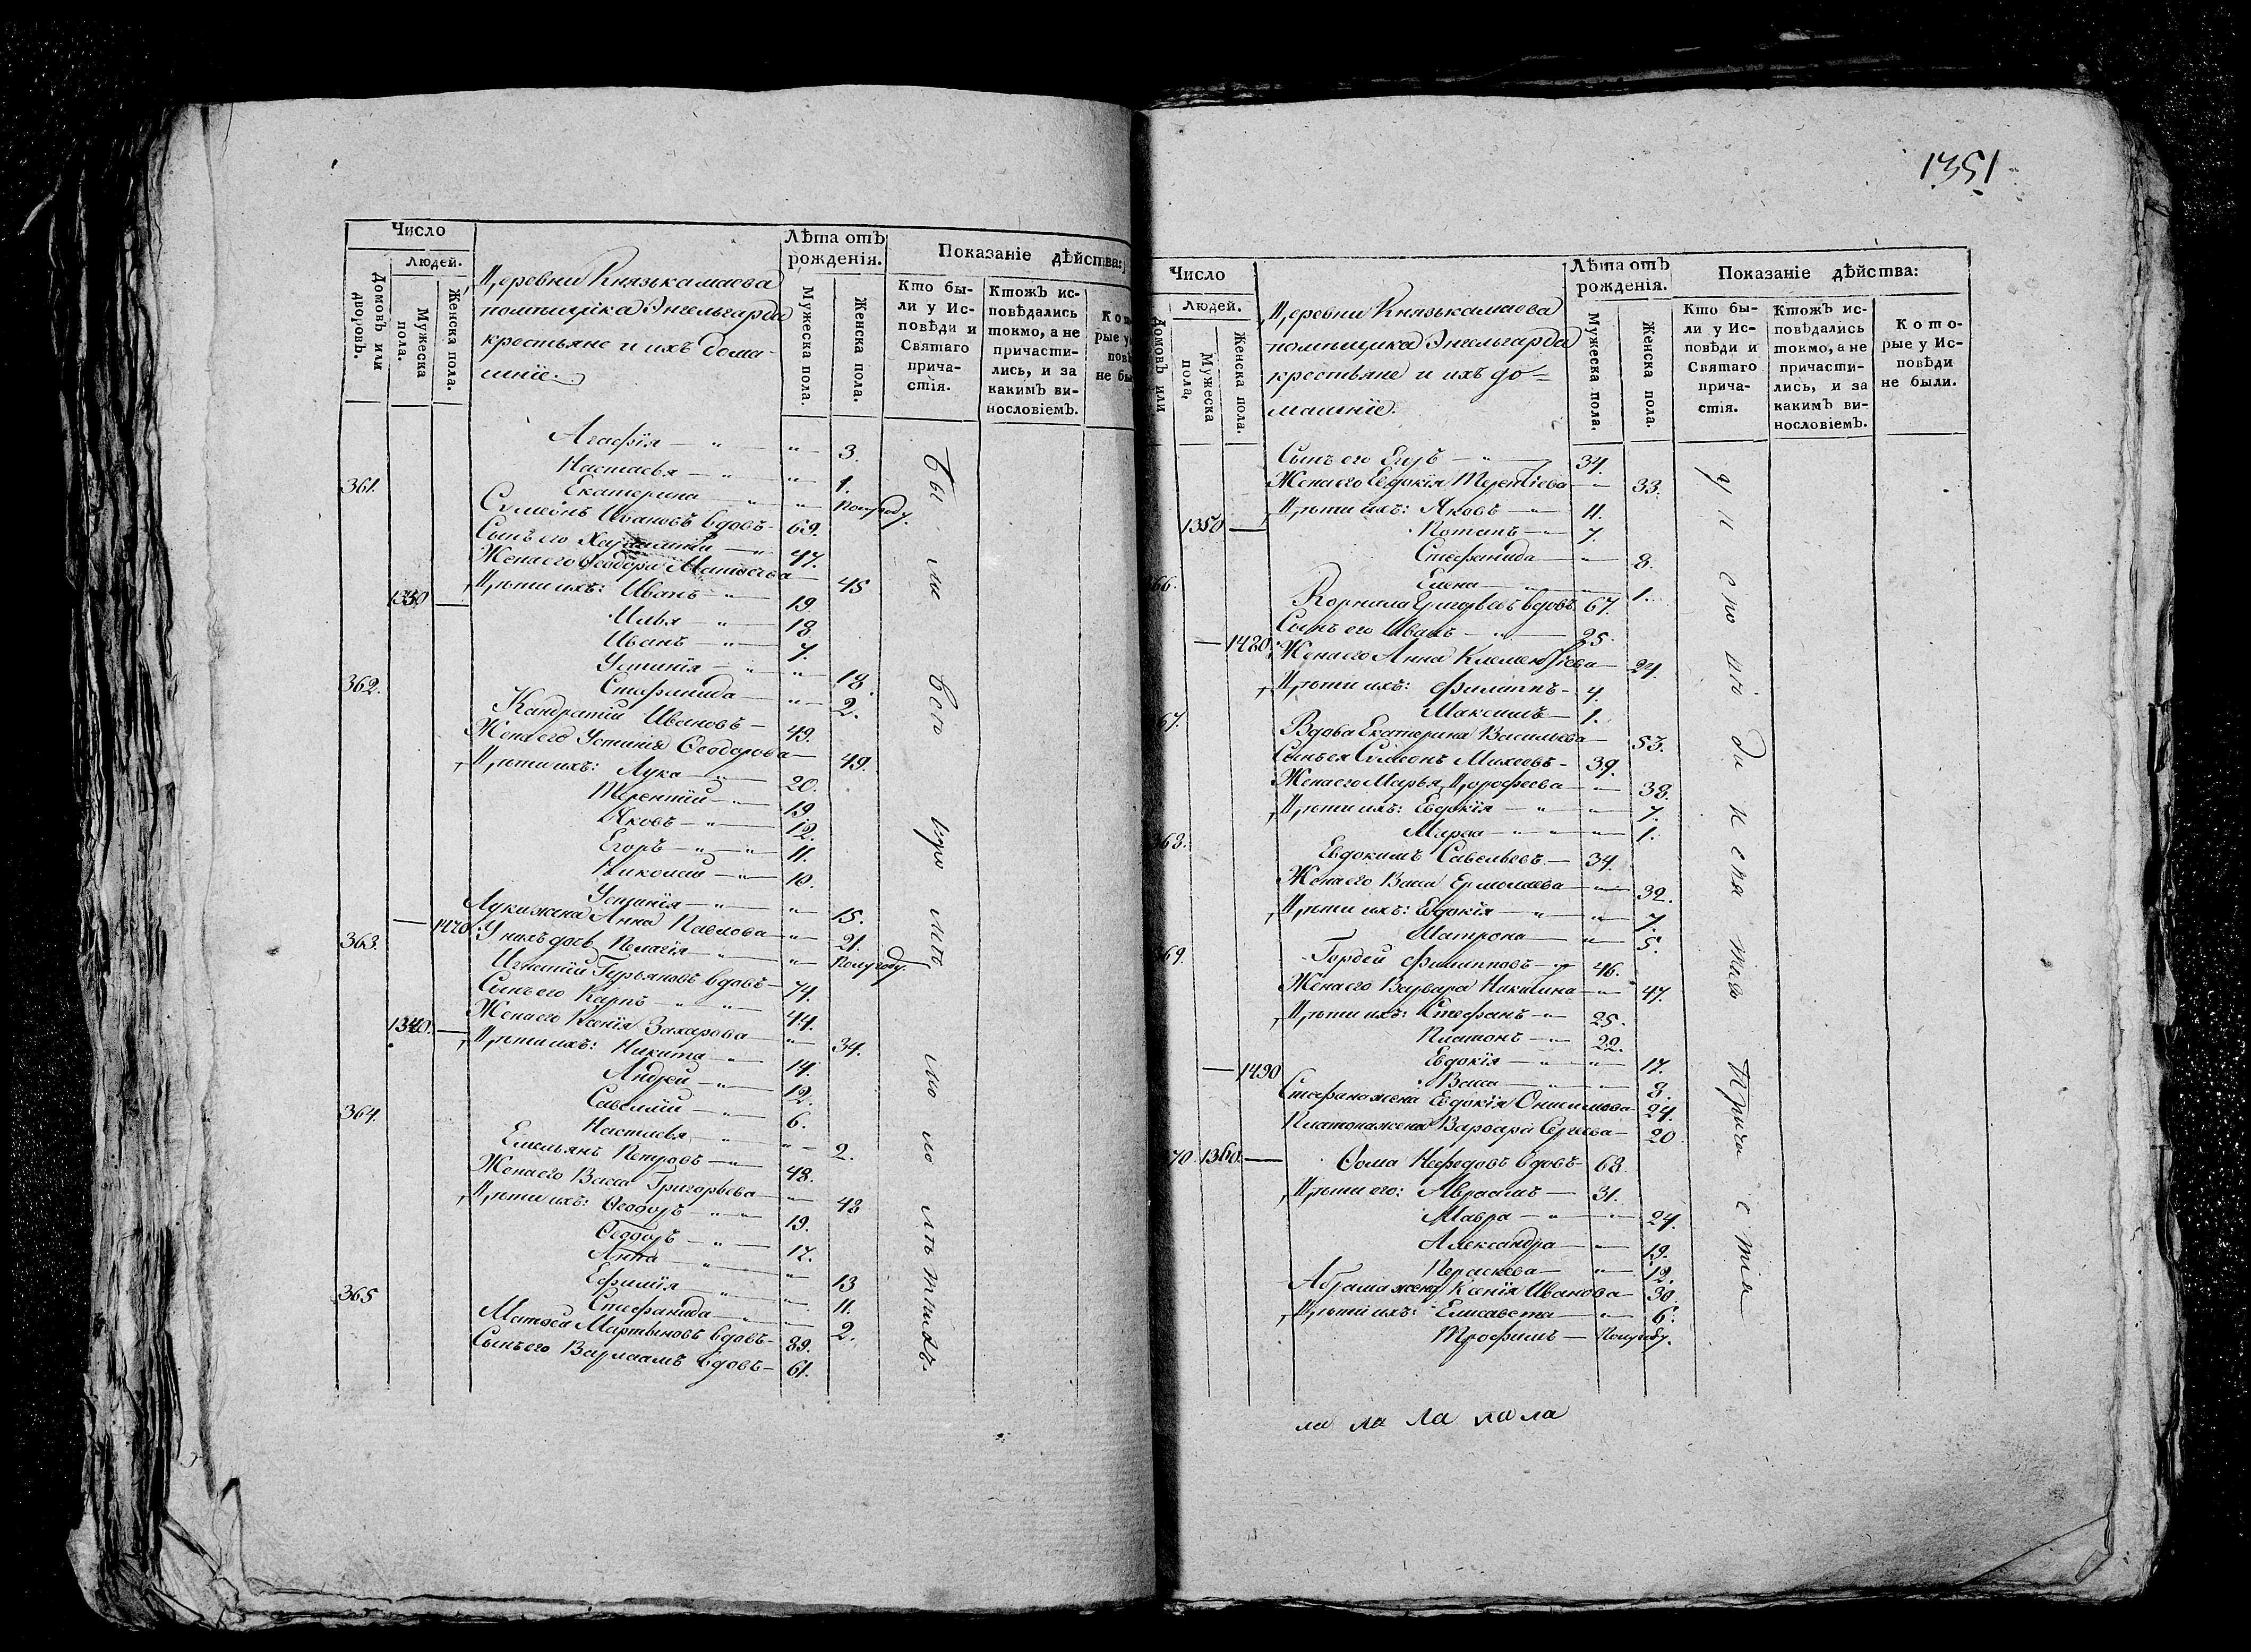 Число
Людей.
Домовъ или дворовъ.
Мужеска пола.
Женска пола.
Деревни Князькамаева
помѣщика Энгельгарда
крестьяне и ихъ дома-
шнiе.
Лѣта отъ
рожденiя.
Мужеска пола.
Женска пола.
Показанiе дѣйства:
Кто бы-
ли у Ис-
повѣди и
Святаго
прича-
стiя.
Ктожъ ис-
повѣдались
токмо, а не
причасти-
лись, и за
какимъ ви-
нословiемъ.
Агафiя — " — " — 3.
Настасья — " — " — 1.
Екатерина — " — " — Полугоду.
361. Сvмеонъ Ивановъ вдовъ — 69.
Сынъ его — " — 47.
Жена его Ѳеодора — 45
Дѣти ихъ: Иванъ — " — 19.
Илья — " — 18
1330 — Иванъ — " — 7.
Устинiя — " — " — 18.
Стефанида — " — 2.
362. Кандратiй Ивановъ — 49.
Жена его Устинiя Ѳеодорова — 49.
Дѣти ихъ: Лука — " — 20.
Терентiй — " — 19
Яковъ — " — 12.
Егоръ — " — " 11.
Николай — " — 10.
Устинiя — " — " — 15.
Лукижена Анна Павлова — " — 21.
— 1470. У нихъ дочь Пелагiя — " — " — Полугоду.
363. Игнатiй Гурьяновъ вдовъ — 74.
Сынъ его Карпъ — " — " — 44.
Жена его Ксенiя Захарова — " — 34.
1340. — Дѣти ихъ: Никита — " — 14.
Андрей — " — 12.
Савелiй — " — 6.
Настасья — " — " — 2.
364. Емельянъ Петровъ — " — 48.
Жена его Васса Григорьева — " — 48
Дѣти ихъ: Ѳеодоръ — " — " — 19.
Ѳеодоръ — " — 17.
Анна — " — " — 13
Ефимiя — " — 11.
Стефанида — " — 2.
365 Матѳей Мартыновъ вдовъ — 89.
Сынъ его Варлаамъ вдовъ — 61.
1351
Число
Людей.
Домовъ или
Мужеска пола,
Женска пола.
Деревни Князькамаева
помѣщика Энгельгарда
крестьяне и ихъ до=
машнiе.
Лѣта отъ
рожденiя.
Мужеска пола.
Женска пола.
Показанiе дѣйства:
Кто бы-
ли у Ис-
повѣди и
Святаго
прича-
стiя.
Ктожъ ис-
повѣдались
токмо, а не
причасти-
лись, и за
какимъ ви-
нословiемъ.
Кото-
рые у Ис-
повѣди
не были.
Сынъ его Егоръ — " — 34.
Жена его Евдокiя Терентiева — " — 33.
Дѣти ихъ: Яковъ — " — 11.
1350 — Потапъ — " — 7.
Стефанида — " — 8.
Елена — " — 1.
66. Корнила Григорьевъ вдовъ. 67.
Сынъ его Иванъ — " — 25.
— 1480. Жена его Анна Климентiева — 24.
Дѣти ихъ: Филиппъ — 4.
Максимъ — 1.
67. Вдова Екатерина Васильева — 53.
Сынъ ея Сvмеонъ Михеевъ — 39.
Жена его Марья Дорофеева — " — 38.
Дѣти ихъ: Евдокiя — " — " — 7.
Марѳа — " — " — 1.
368. Евдокимъ Савельевъ — 34.
Жена его Васса Ермолаева — " — 32.
Дѣти ихъ: Евдокiя — " — " — 7.
Матрона — " — 5.
369. Гордей Филипповъ — " — 46.
Жена его Варвара Никитина — " — 47.
Дѣти ихъ: Стефанъ — " — 25.
Платонъ — " — 22.
Евдокiя — " — " — 17.
— 1490 Васса — " — " — 8.
Стефана жена Евдокiя Онисимова — 24.
Платона жена Варвара Сергеева — 20.
70. 1360. — Ѳома Нефедовъ вдовъ — 68.
Дѣти его: Авраамъ — 31.
Мавра — " — " — 24.
Александра — " — 19.
Параскева — " — 12.
Абрама жена Ксенiя Иванова — 30.
Дѣти ихъ: Елисавета — " — 6.
Трофимъ — Полугоду.
ла ла ла пола